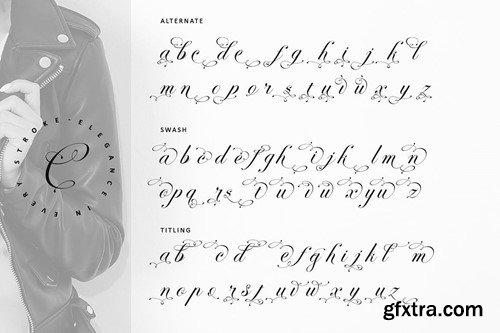 ALTERNATE
a b c d e f g h i j k l
m n o p q r s t u d w x y z
SWASH
a b c d e f g h i j k l m n
o p q r s t u v w x y u z
TITLING
a b c d e f g h i j k l m
n o p q r s u u w x y u z
IN EVERY STROKE - ELEGANCE
e
gfxtra.com